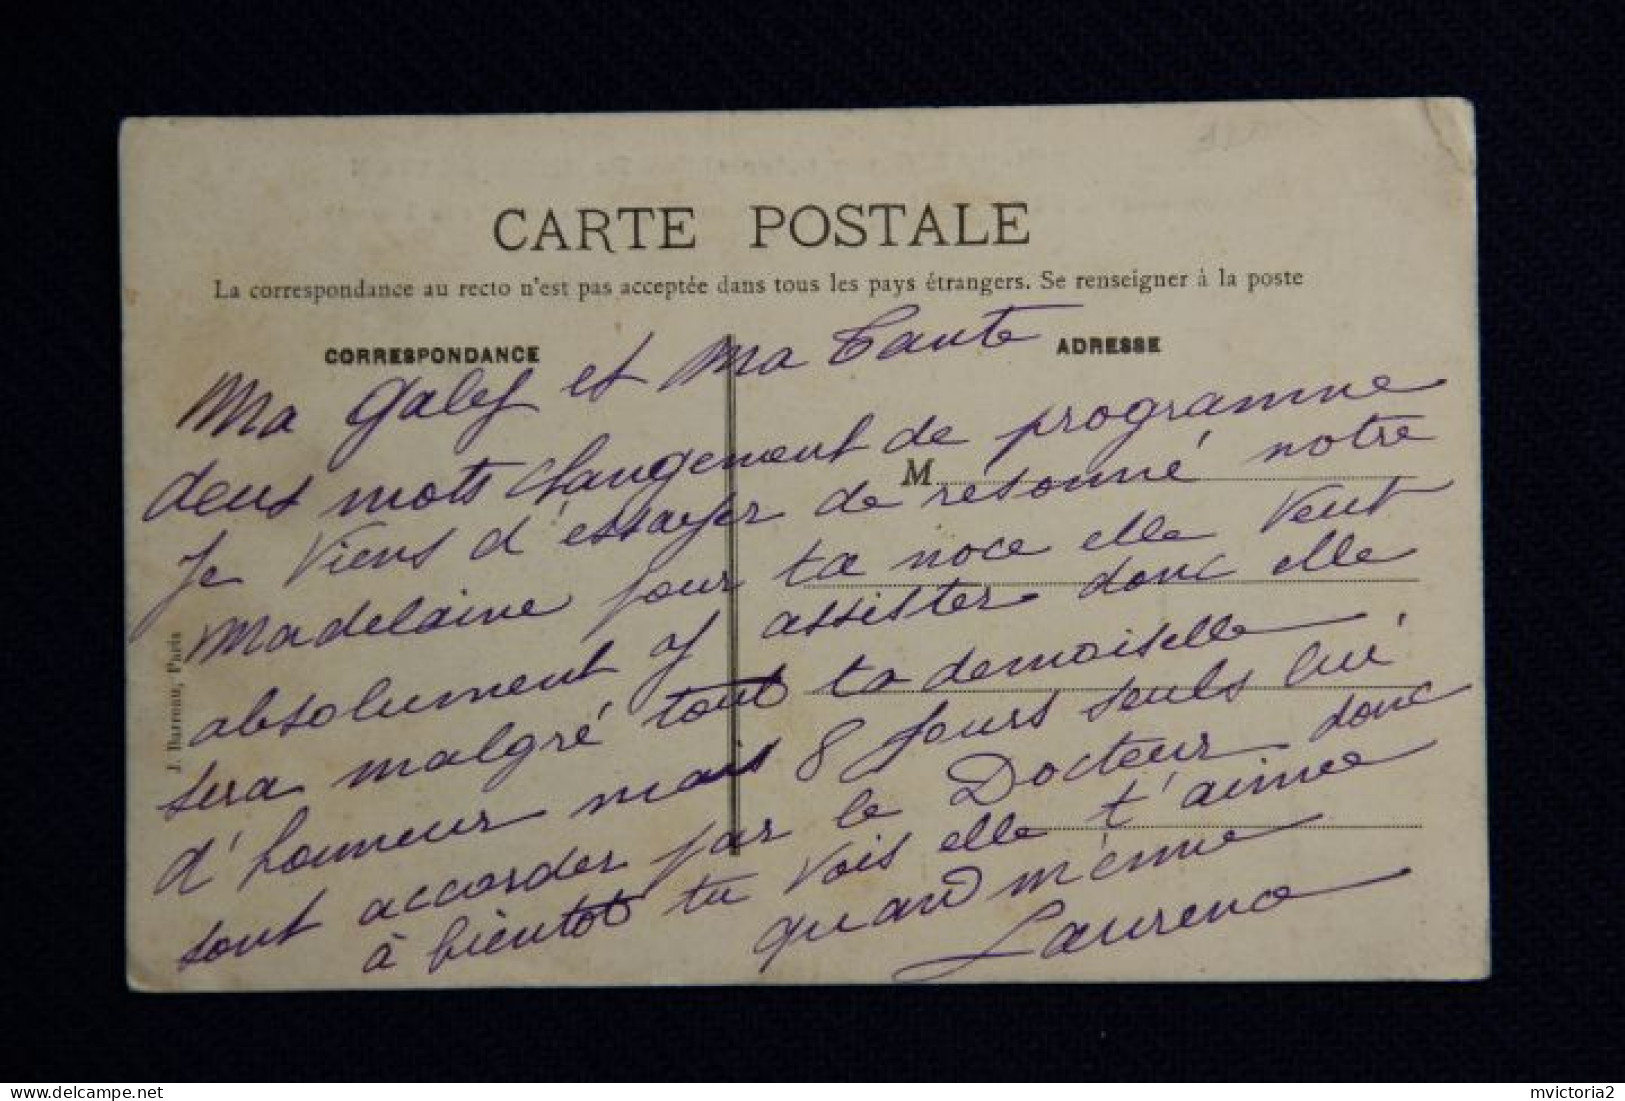 CARTE POSTALE
La correspondance au recto n'est pas acceptée dans tous les pays étrangers. Se renseigner à la poste
CORRESPONDANCE
ADRESSE
M
Ma et Ma Tante
deux mots changement de programme
Je viens d'essayer de résonné notre
Madelaine pour ta noce elle veut
absolument y assister donc elle
sera malgré tout ta demoiselle
d'honneur mais 8 jours seuls lui
sont accorder par le Docteur donc
à bientot tu vois elle t'aimee
quand même
J. Barreau, Paris
mvictoria2